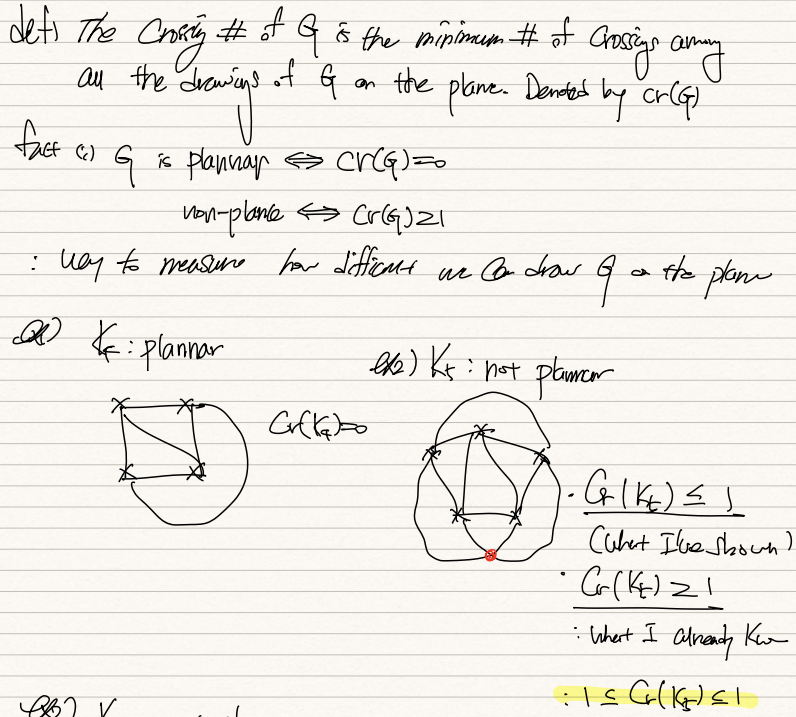 def) The Crossing # of G is the minimum # of Crossings among
all the drawings of G on the plane. Denoted by cr(G)
fact (i) G is plannar ⇔ cr(G)=0
non-plane ⇔ cr(G)≥1
: way to measure how difficult we can draw G on the plane
ex1) K4 : plannar
cr(K4)=0
ex2) K5 : not plannar
· Cr(K5) ≤ 1
(what I've shown)
· Cr(K5) ≥ 1
: what I already know
: 1 ≤ Cr(K5) ≤ 1
ex3) K